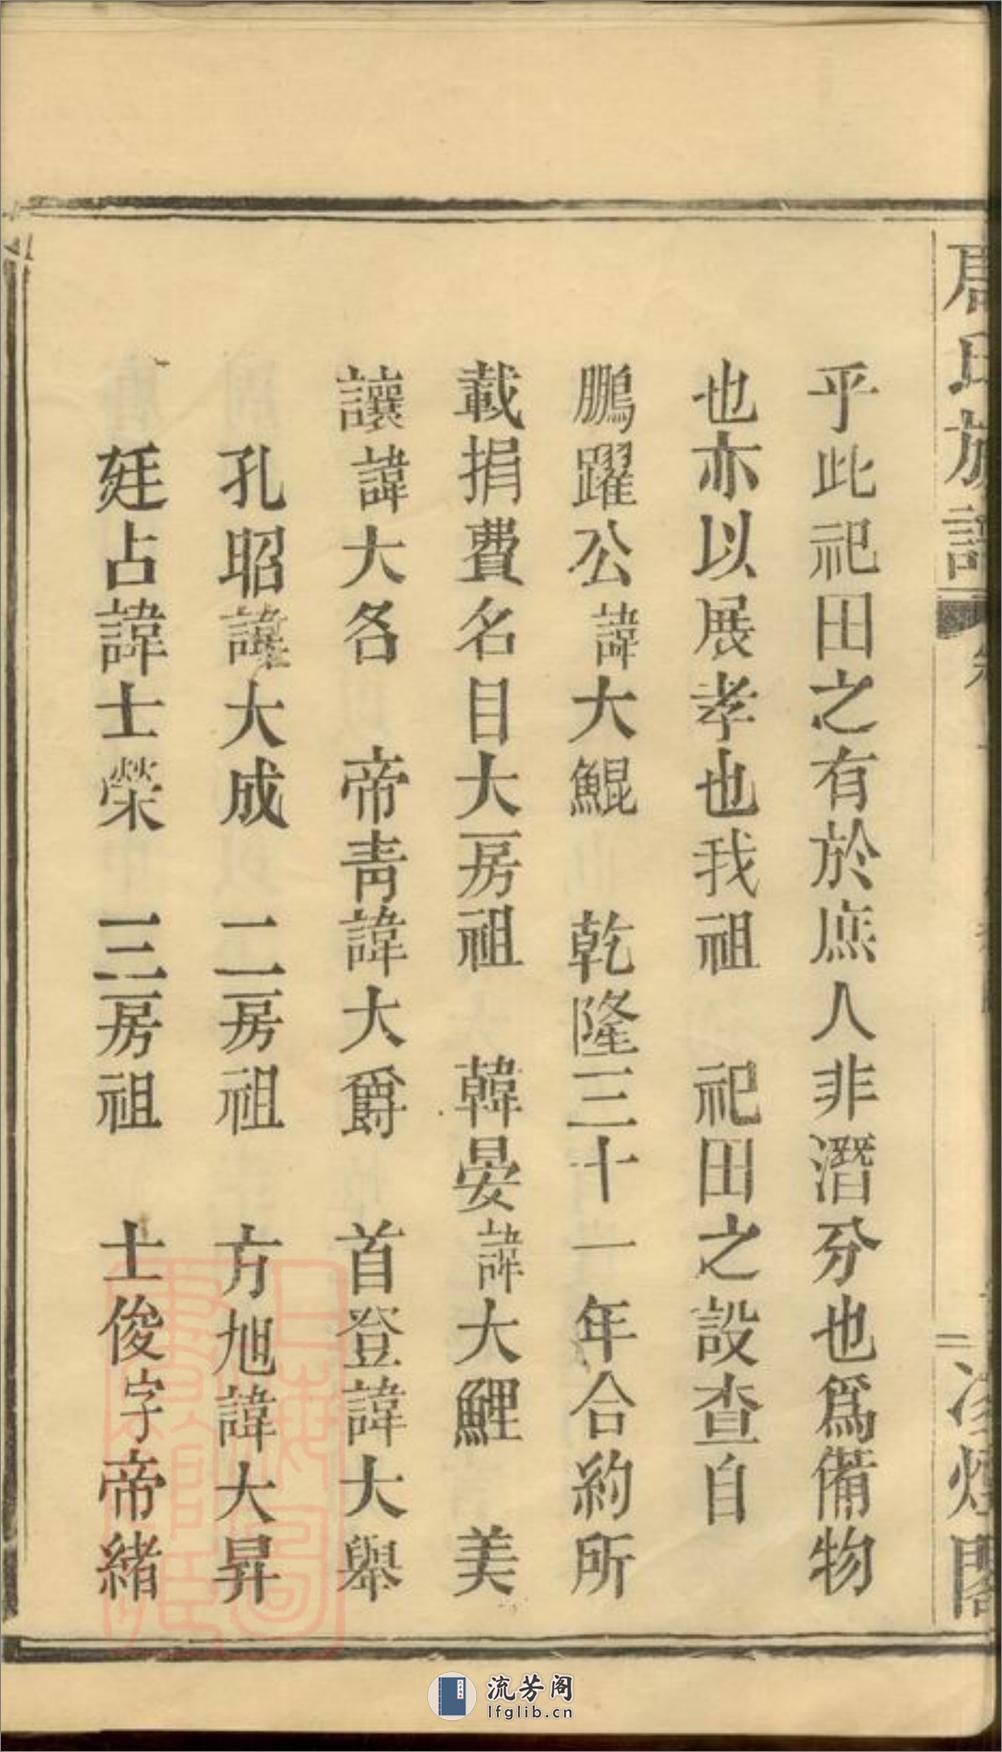 乎此祀田之有於庶人非潛分也爲備物
也亦以展孝也我祖　祀田之設查自
鵬躍公諱大鯤　乾隆三十一年合約所
載捐費名目大房祖　韓晏諱大鯉　美
讓諱大各　帝青諱大爵　首登諱大舉
孔昭諱大成　二房祖　方旭諱大昇
廷占諱士榮　三房祖　士俊字帝緒
氏族譜
閣
流芳阁
lfglib.cn